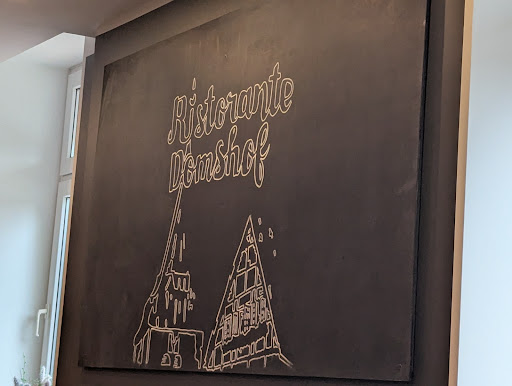 Ristorante
Domshof